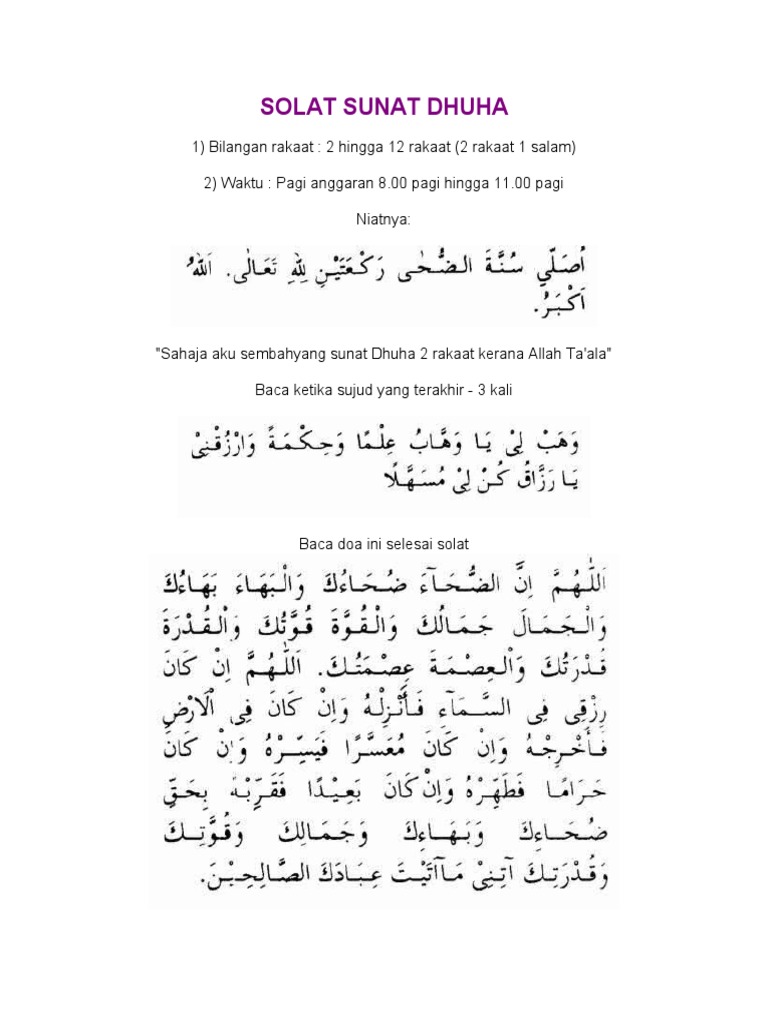 SOLAT SUNAT DHUHA
1) Bilangan rakaat : 2 hingga 12 rakaat (2 rakaat 1 salam)
2) Waktu : Pagi anggaran 8.00 pagi hingga 11.00 pagi
Niatnya:
اُصَلِّي سُنَّةَ الضُّحٰى رَكْعَتَيْنِ لِلّٰهِ تَعَالٰى. اَللهُ
اَكْبَرُ.
"Sahaja aku sembahyang sunat Dhuha 2 rakaat kerana Allah Ta'ala"
Baca ketika sujud yang terakhir - 3 kali
وَهَبْ لِىْ يَا وَهَّابُ عِلْمًا وَحِكْمَةً وَارْزُقْنِىْ
يَا رَزَّاقُ كُنْ لِىْ مُسَهِّلًا
Baca doa ini selesai solat
اَللّٰهُمَّ اِنَّ الضُّحَآءَ ضُحَاءُكَ وَالْبَهَاءَ بَهَاءُكَ
وَالْجَمَالَ جَمَالُكَ وَالْقُوَّةَ قُوَّتُكَ وَالْقُدْرَةَ
قُدْرَتُكَ وَالْعِصْمَةَ عِصْمَتُكَ. اَللّٰهُمَّ اِنْ كَانَ
رِزْقِى فِى السَّمَآءِ فَأَنْزِلْهُ وَاِنْ كَانَ فِى الْاَرْضِ
فَأَخْرِجْهُ وَاِنْ كَانَ مُعَسَّرًا فَيَسِّرْهُ وَاِنْ كَانَ
حَرَامًا فَطَهِّرْهُ وَاِنْ كَانَ بَعِيْدًا فَقَرِّبْهُ بِحَقِّ
ضُحَاءِكَ وَبَهَاءِكَ وَجَمَالِكَ وَقُوَّتِكَ
وَقُدْرَتِكَ آتِنِىْ مَآاَتَيْتَ عِبَادَكَ الصَّالِحِيْنَ.